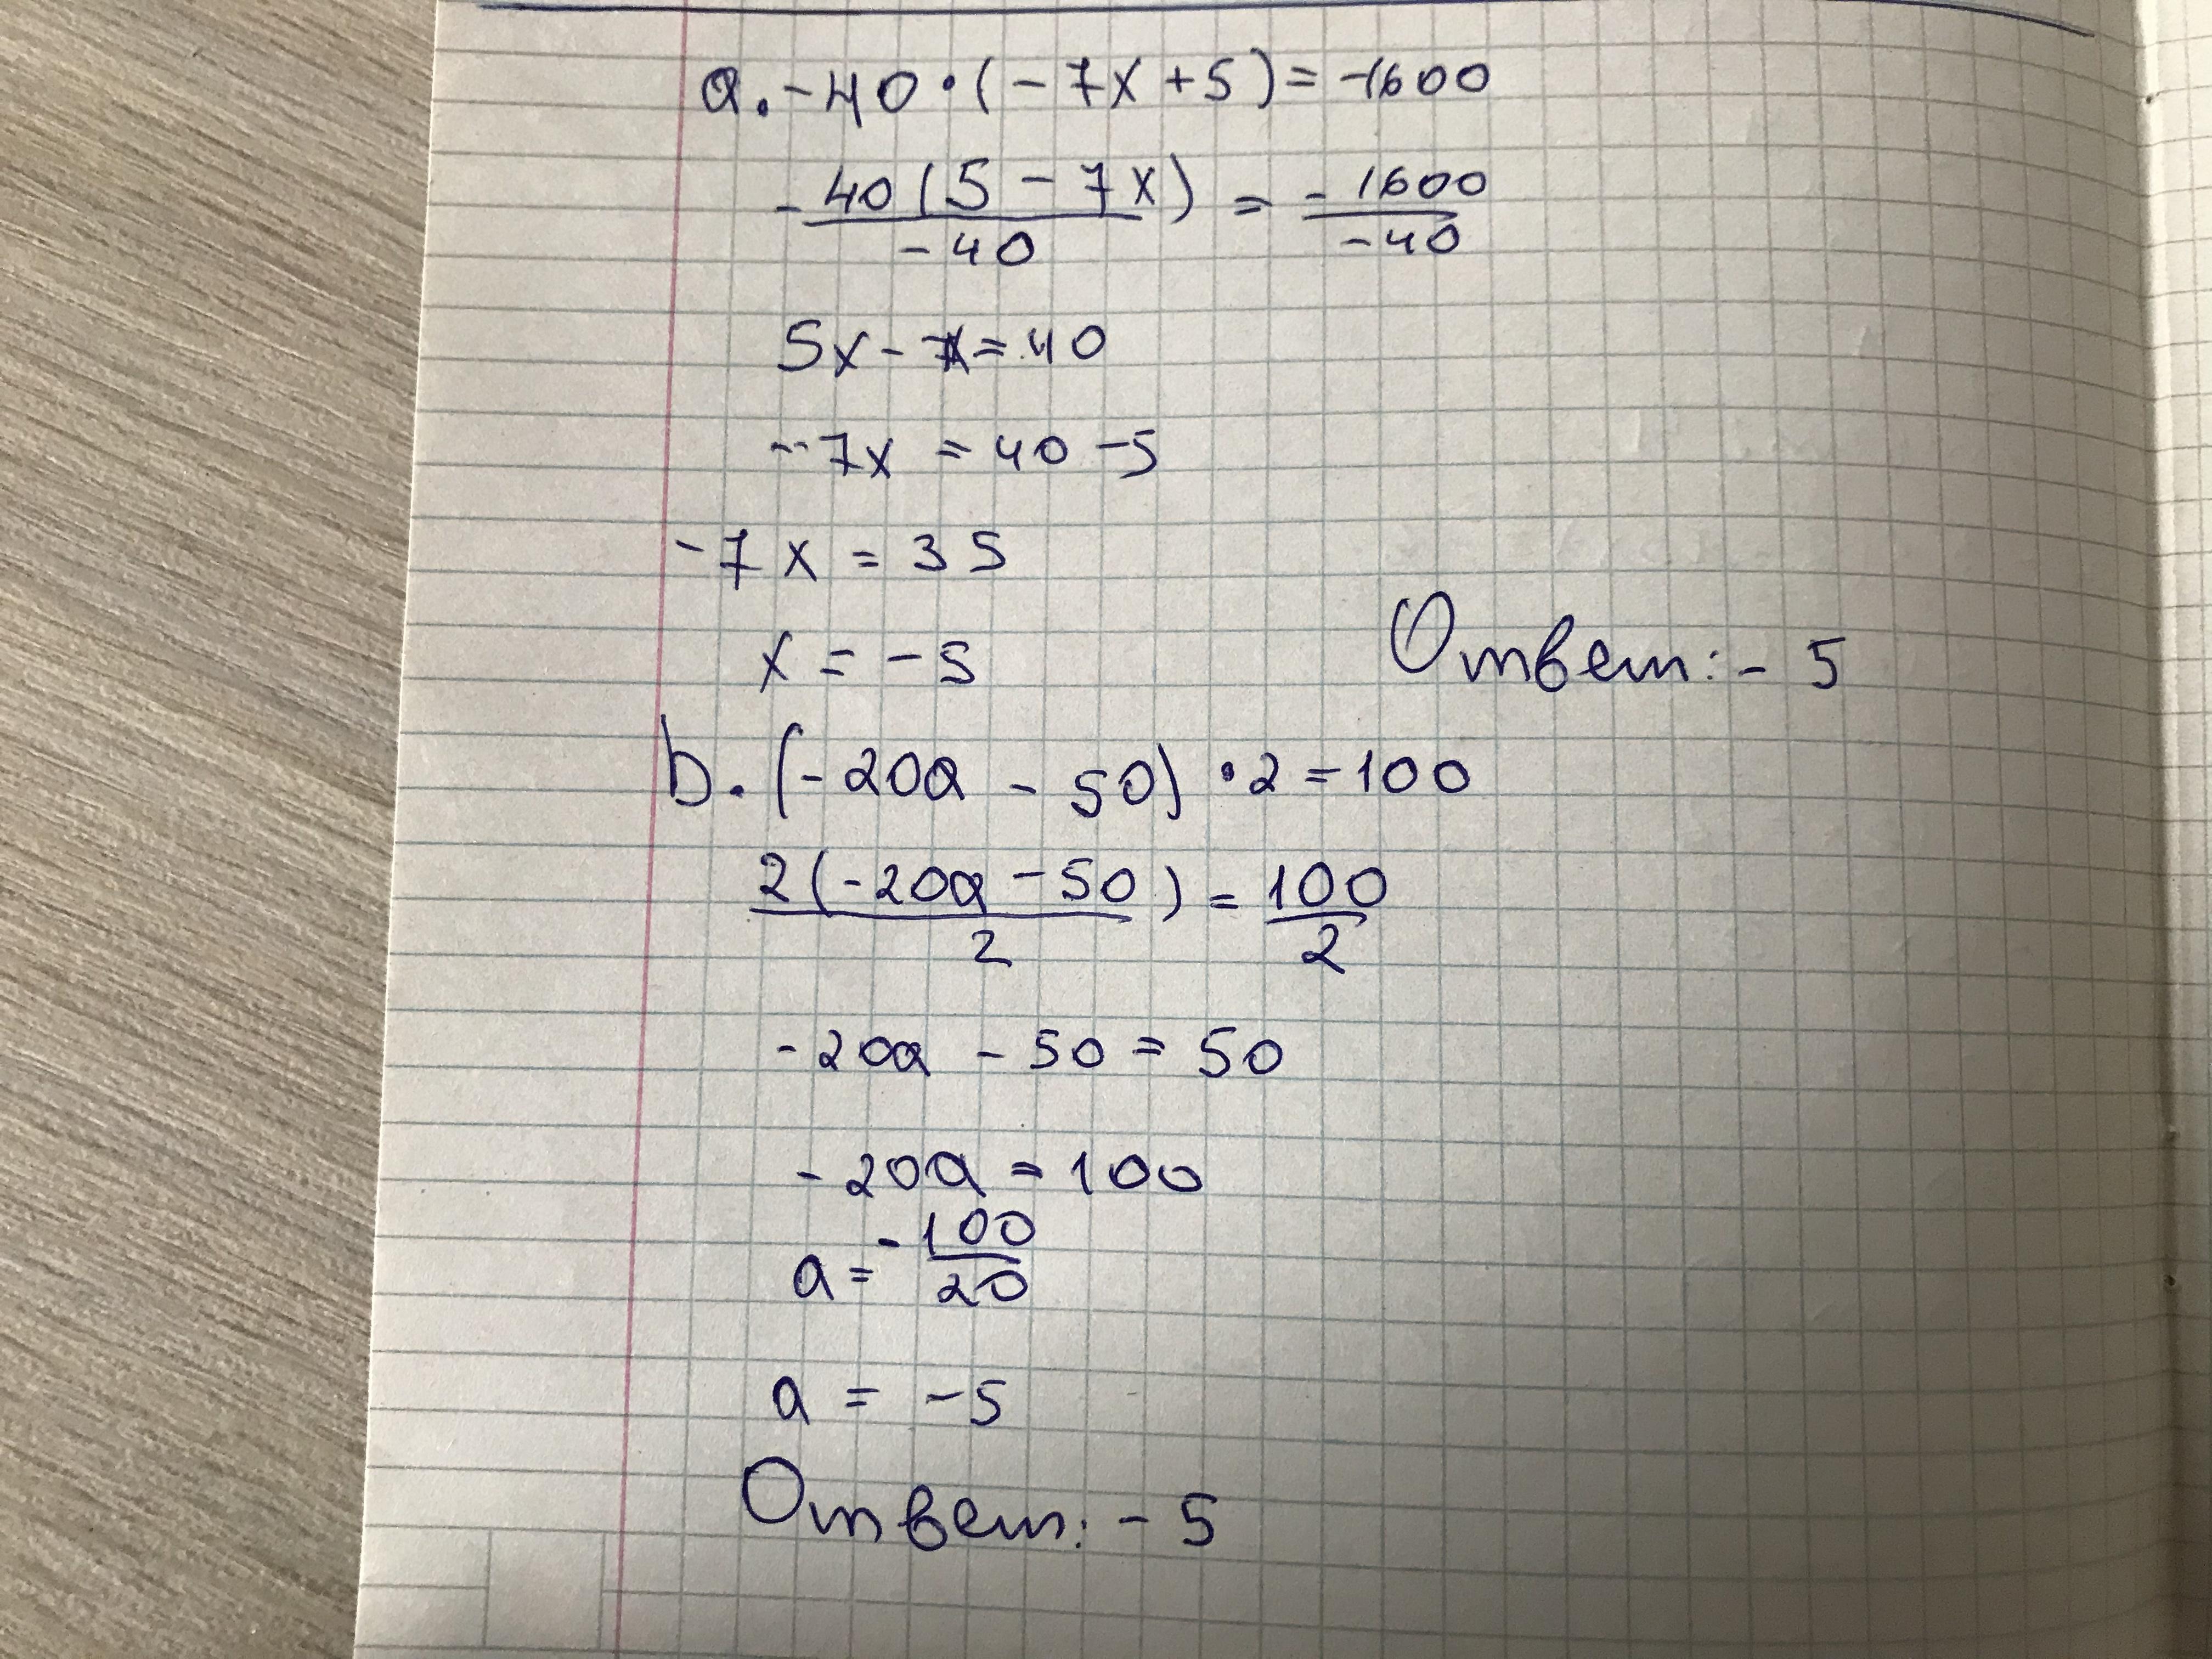 a. -40 · (-7x + 5) = -1600
-40(5 - 7x) / -40 = -1600 / -40
5x - 7x = 40
-7x = 40 - 5
-7x = 35
x = -5
Ответ: -5
b. (-20a - 50) · 2 = 100
2(-20a - 50) / 2 = 100 / 2
-20a - 50 = 50
-20a = 100
a = -100 / 20
a = -5
Ответ: -5